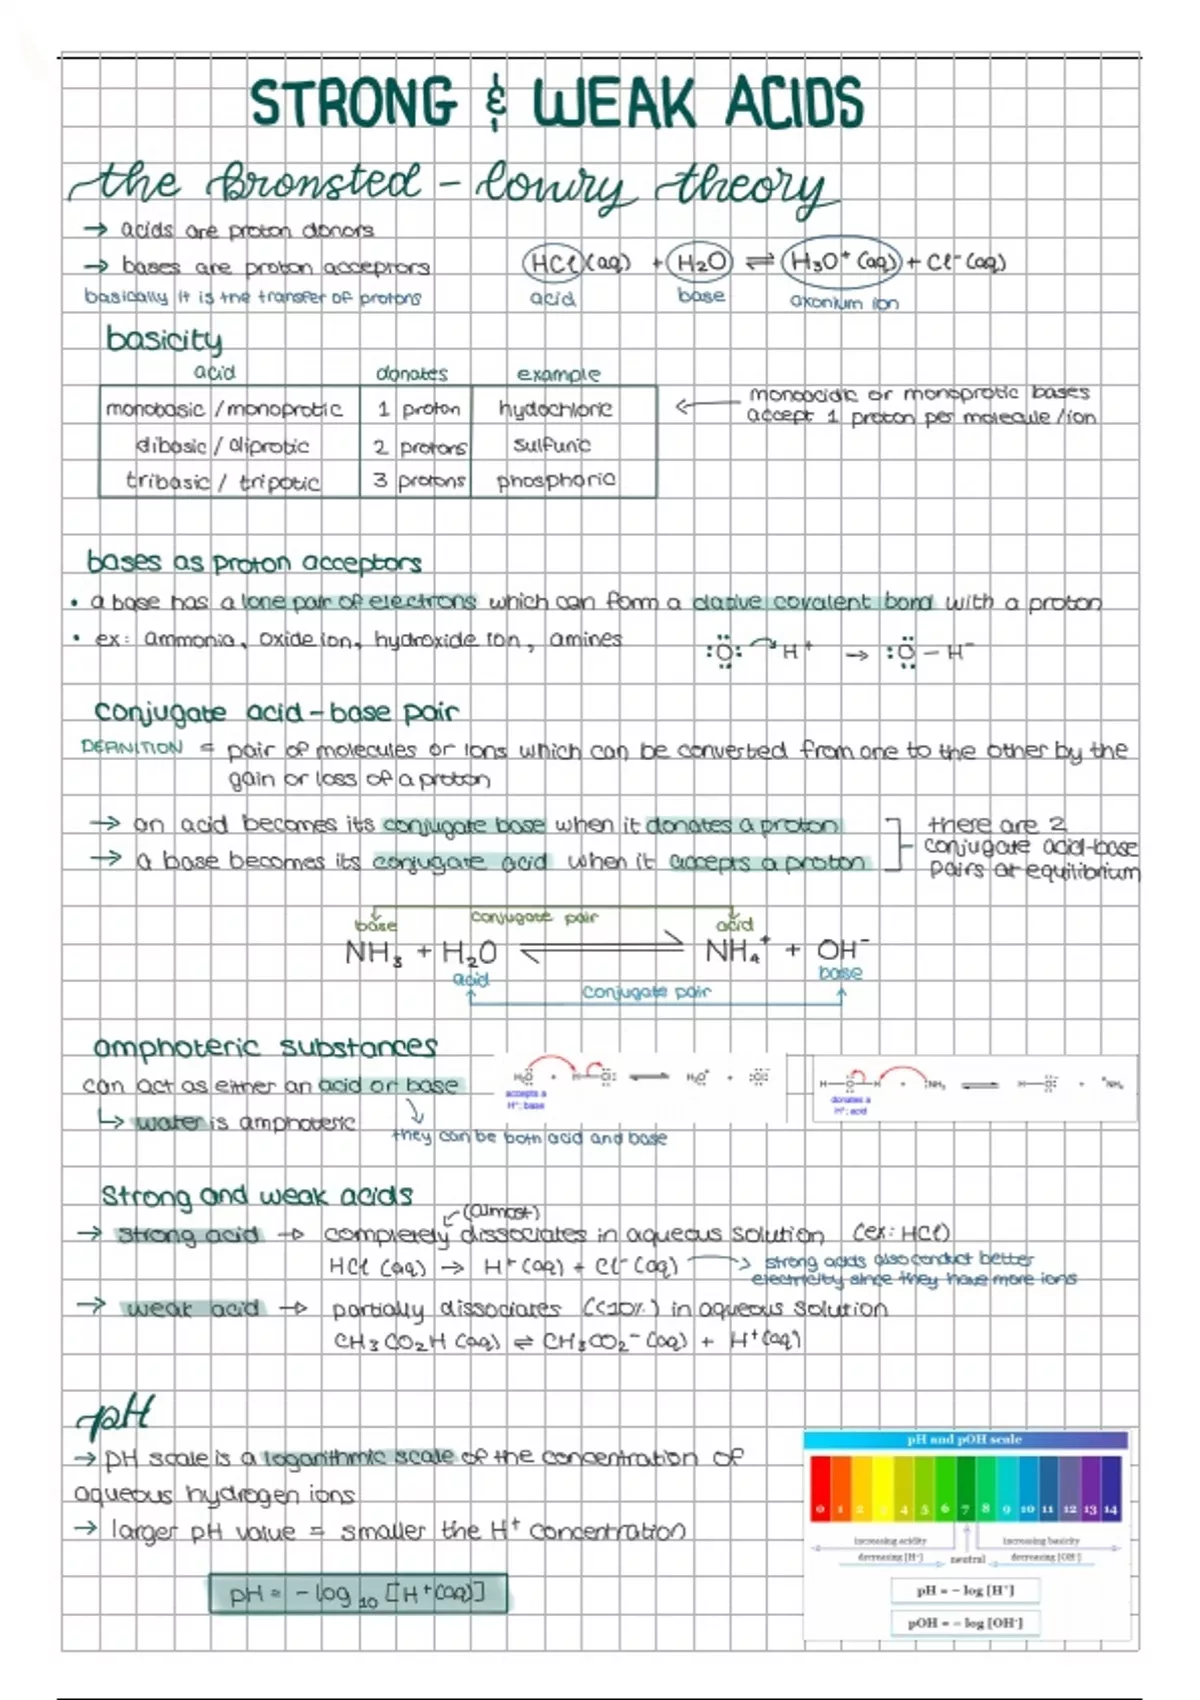 STRONG & WEAK ACIDS
the Bronsted - lowry theory
→ acids are proton donors
→ bases are proton acceptors
basically it is the transfer of protons
HCl (aq) + H₂O ⇌ H₃O⁺ (aq) + Cl⁻ (aq)
acid base oxonium ion
basicity
acid donates example
monobasic / monoprotic 1 proton hydochloric
dibasic / diprotic 2 protons sulfuric
tribasic / tripotic 3 protons phosphoric
← monoacidic or monoprotic bases
accept 1 proton per molecule / ion
bases as proton acceptors
• a base has a lone pair of electrons which can form a dative covalent bond with a proton
• ex: ammonia, oxide ion, hydroxide ion, amines
:O: H⁺ → :O – H⁻
conjugate acid-base pair
DEFINITION = pair of molecules or ions which can be converted from one to the other by the
gain or loss of a proton
→ an acid becomes its conjugate base when it donates a proton
→ a base becomes its conjugate acid when it accepts a proton
there are 2
conjugate acid-base
pairs at equilibrium
base conjugate pair acid
NH₃ + H₂O ⇌ NH₄⁺ + OH⁻
acid base
conjugate pair
amphoteric substances
can act as either an acid or base
↳ water is amphoteric
they can be both acid and base
H₂O + H–O: ⇌ H₃O⁺ + :O:
accepts a
H⁺; base
H–O–H + :NH₃ ⇌ H–O: + ⁺NH₄
donates a
H⁺; acid
Strong and weak acids
(almost)
→ strong acid → completely dissociates in aqueous solution (ex: HCl)
HCl (aq) → H⁺ (aq) + Cl⁻ (aq)
→ strong acids also conduct better
electricity since they have more ions
→ weak acid → partially dissociates (<10%) in aqueous solution
CH₃CO₂H (aq) ⇌ CH₃CO₂⁻ (aq) + H⁺ (aq)
pH
→ pH scale is a logarithmic scale of the concentration of
aqueous hydrogen ions
→ larger pH value = smaller the H⁺ concentration
pH = - log ₁₀ [H⁺(aq)]
pH and pOH scale
0 1 2 3 4 5 6 7 8 9 10 11 12 13 14
increasing acidity increasing basicity
decreasing [H⁺] neutral decreasing [OH⁻]
pH = - log [H⁺]
pOH = - log [OH⁻]